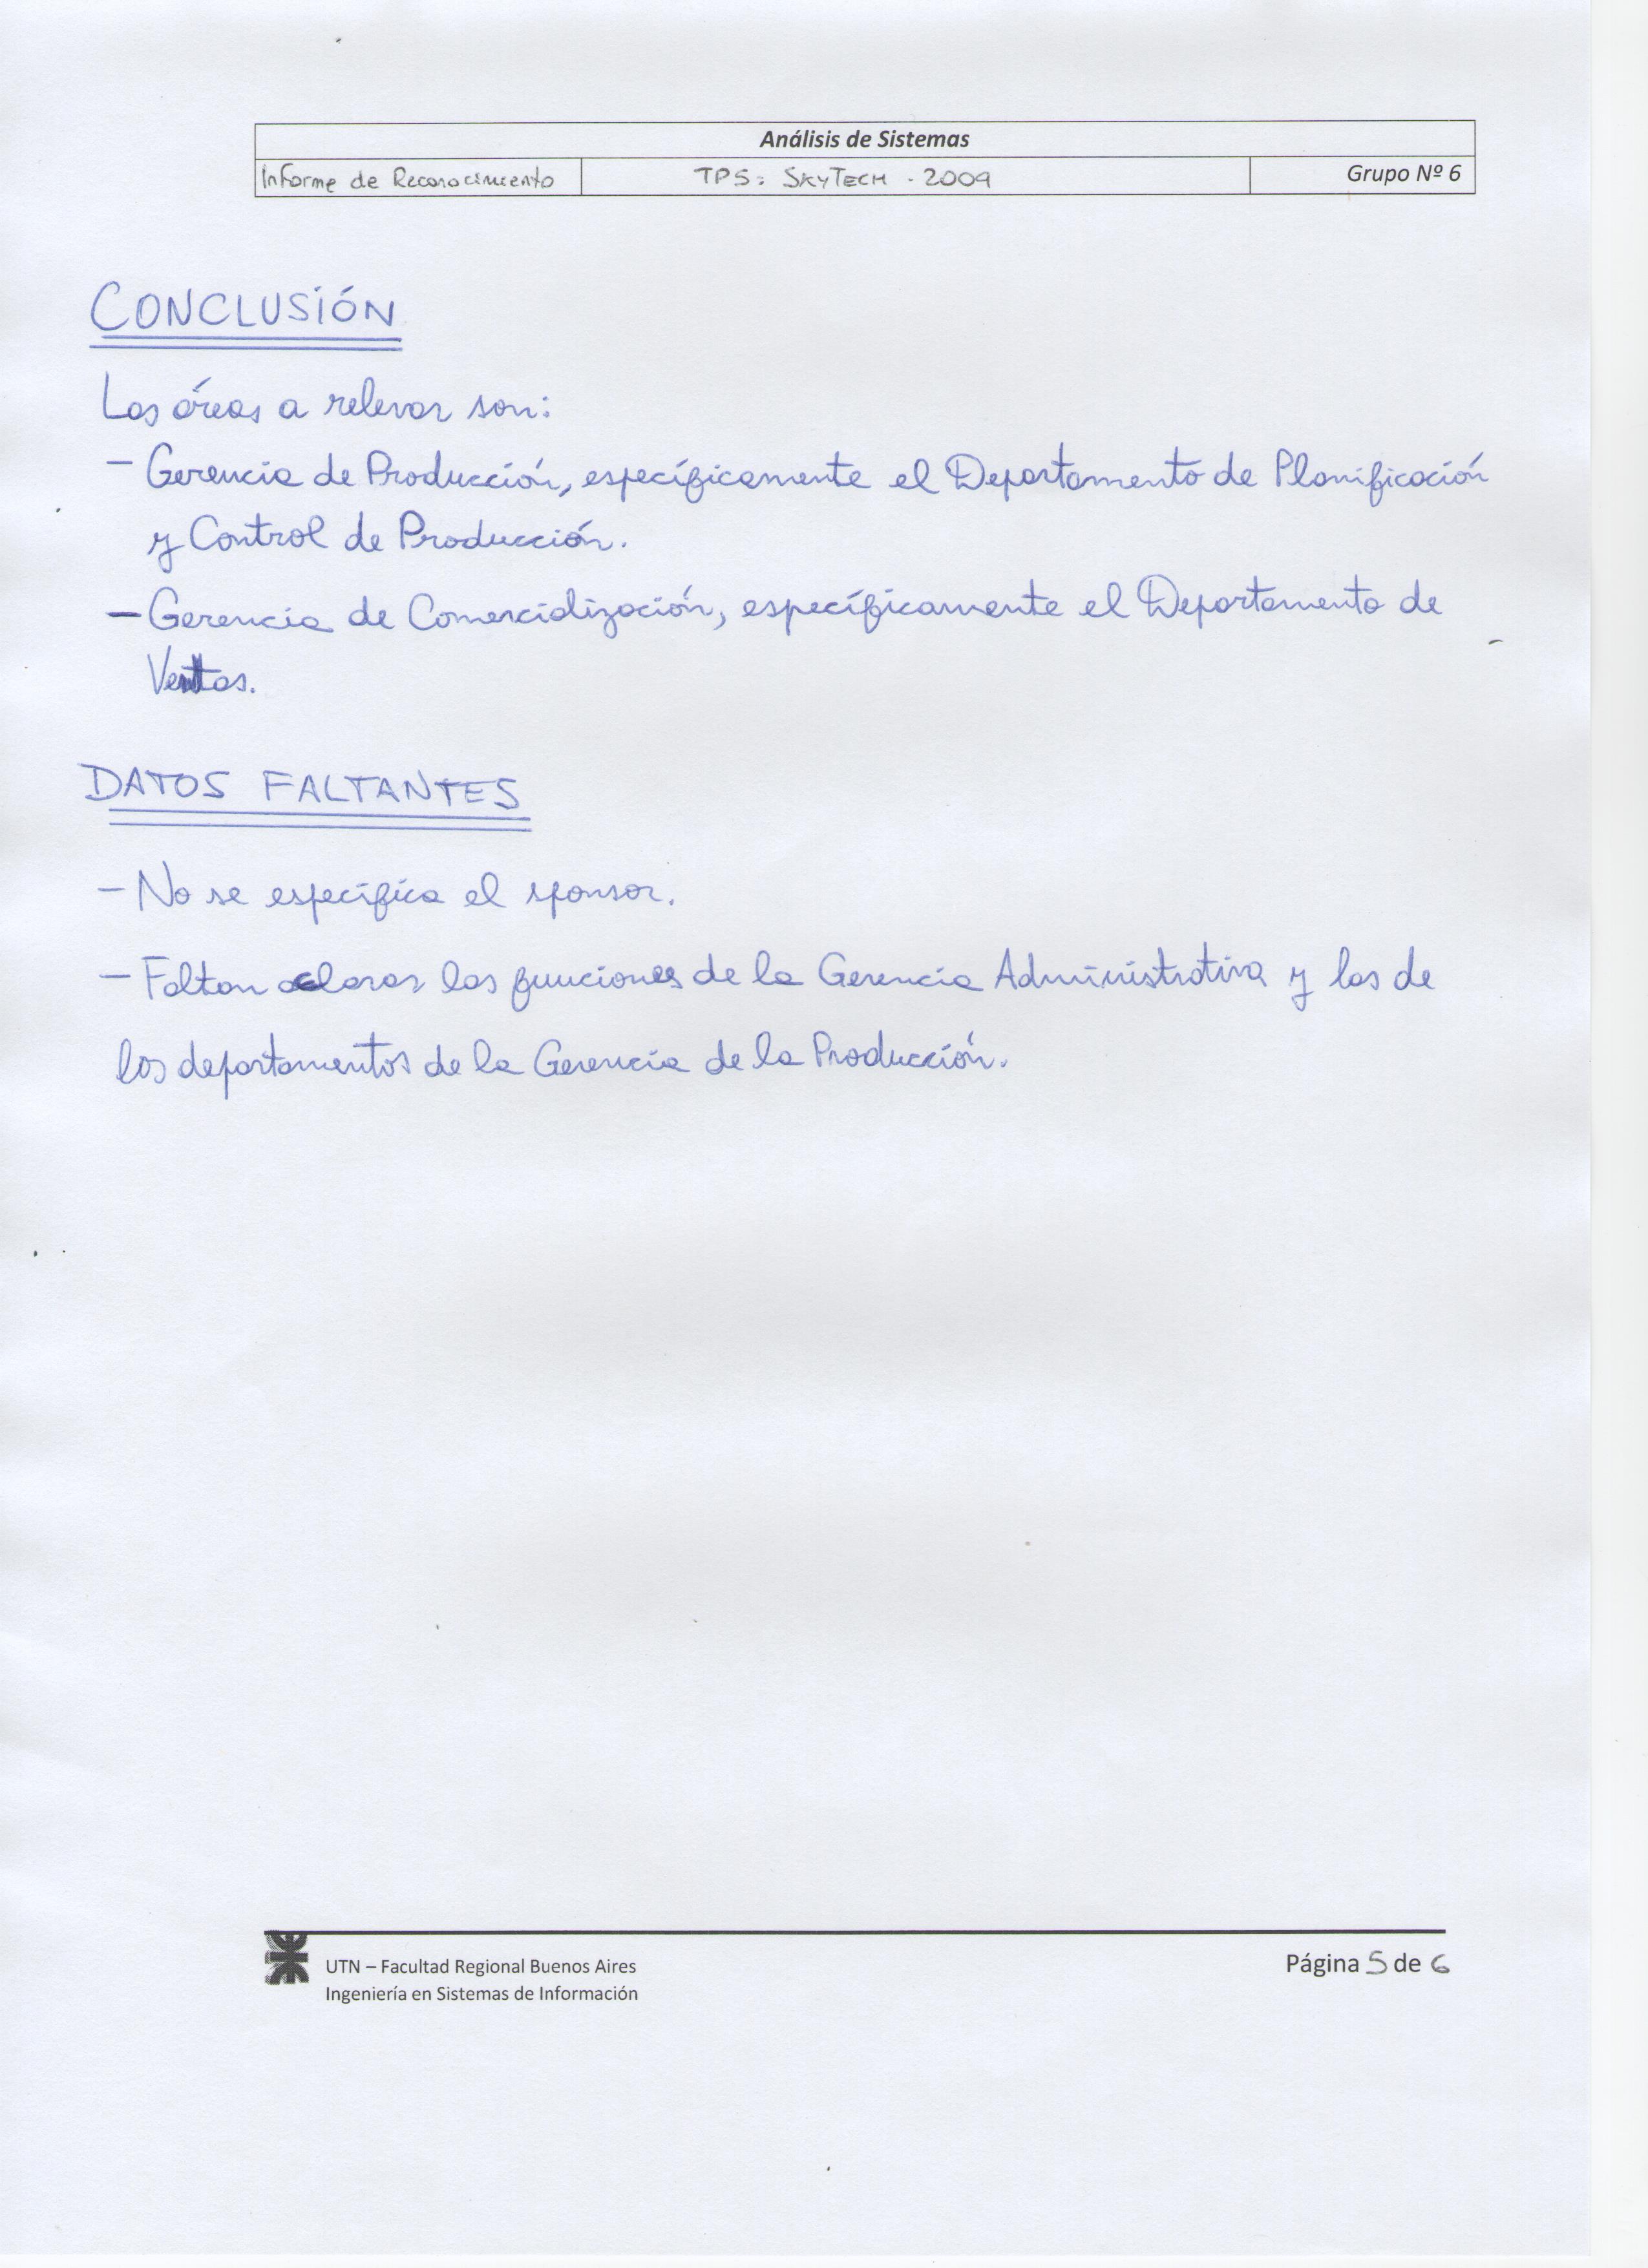 Análisis de Sistemas
Informe de Reconocimiento TP5: SKYTECH - 2009 Grupo Nº 6
CONCLUSIÓN
Las áreas a relevar son:
- Gerencia de Producción, específicamente el Departamento de Planificación
y Control de Producción.
- Gerencia de Comercialización, específicamente el Departamento de
Ventas.
DATOS FALTANTES
- No se especifica el sponsor.
- Faltan aclarar las funciones de la Gerencia Administrativa y las de
los departamentos de la Gerencia de la Producción.
UTN – Facultad Regional Buenos Aires
Ingeniería en Sistemas de Información
Página 5 de 6